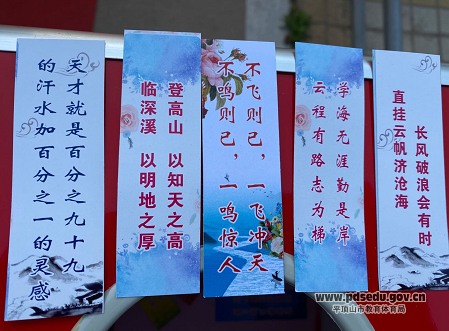 天才就是百分之九十九
的汗水加百分之一的灵感
登高山 以知天之高
临深溪 以明地之厚
不飞则已，一飞冲天
不鸣则已，一鸣惊人
学海无涯勤是岸
云程有路志为梯
长风破浪会有时
直挂云帆济沧海
www.pdsedu.gov.cn
平顶山市教育体育局